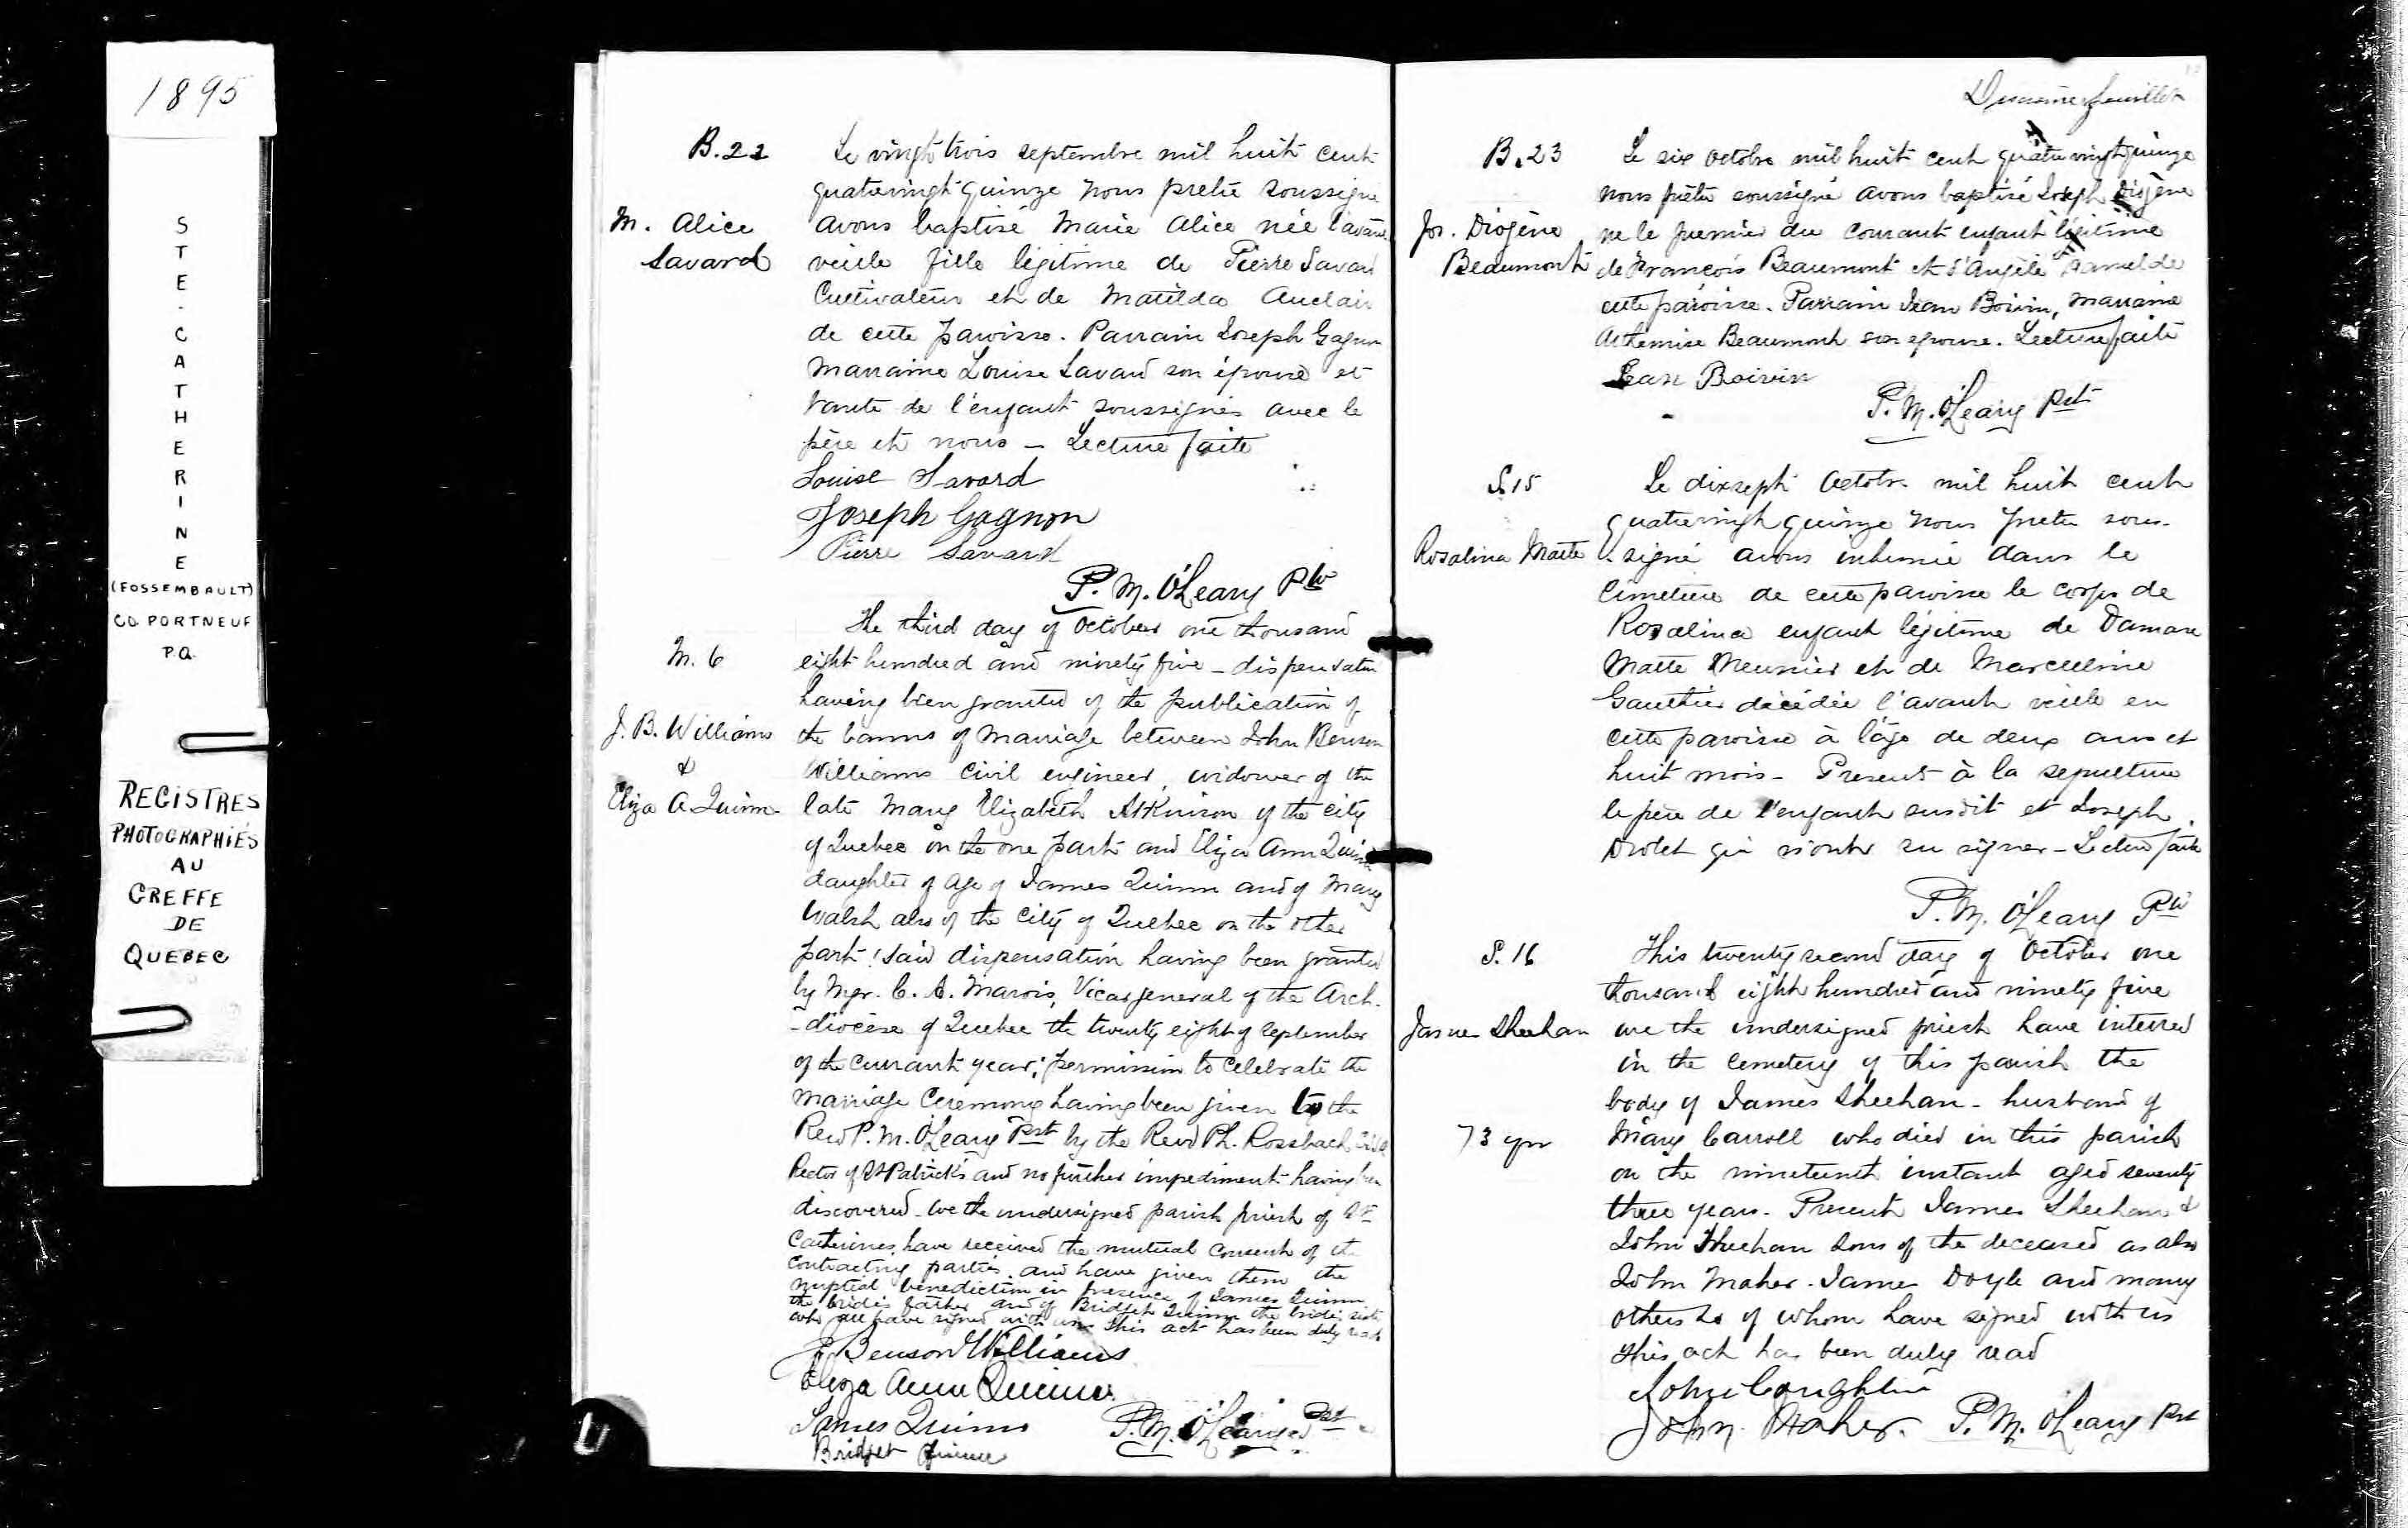 1895
STE-CATHERINE
(FOSSEMBAULT)
CO. PORTNEUF
P.Q.
REGISTRES
PHOTOGRAPHIÉS
AU
GREFFE
DE
QUEBEC
B.22
M. Alice
Savard
Le vingt trois septembre mil huit cent
quatrevingt quinze nous pretre soussigne
avons baptisé Marie Alice née l'avant
veille fille légitime de Pierre Savard
Cultivateur et de Matilda Auclair
de cette paroisse. Parrain Joseph Gagnon
Marraine Louise Savard son épouse et
tante de l'enfant soussignés avec le
père et nous - Lecture faite
Louise Savard
Joseph Gagnon
Pierre Savard
P. M. O'Leary Ptr
M. 6
J. B. Williams
&
Eliza A. Quinn
The third day of October one thousand
eight hundred and ninety five - dispensation
having been granted of the publication of
the banns of marriage between John Benson
Williams Civil engineer, widower of the
late Mary Elizabeth Atkinson of the city
of Quebec on the one part and Eliza Ann Quinn
daughter of age of James Quinn and of Mary
Walsh also of the City of Quebec on the other
part! Said dispensation having been granted
by Mgr. C. A. Marois, Vicar general of the Arch-
-diocese of Quebec the twenty eight of September
of the currant year; permission to celebrate the
marriage Ceremony having been given to the
Revd P. M. O'Leary Pst by the Revd Ph. Rossbach
Rector of St Patrick's and no further impediment having been
discovered - we the undersigned parish priest of St
Catherines, have received the mutual consent of the
contracting parties and have given them the
nuptial benediction in presence of James Quinn
the bride's father and of Bridget Quinn the bride's sister
who all have signed with us. This act has been duly read
J Benson Williams
Eliza Ann Quinn.
James Quinn
P. M. O'Leary Pst
Bridget Quinn
B.23
Jos. Diogène
Beaumont
Le six octobre mil huit cent quatrevingt quinze
nous prêtre soussigné avons baptisé Joseph Diogène
né le premier du courant enfant légitime
de François Beaumont et d'Angèle Hamel de
cette paroisse. Parrain Jean Boivin, marraine
Arthemise Beaumont son epouse. Lecture faite
Jean Boivin
P. M. O'Leary Pst
S.15
Rosalina Matte
Le dixsept Octobre mil huit cent
quatrevingt quinze nous pretre sous-
-signé avons inhumé dans le
Cimetiere de cette paroisse le corps de
Rosalina enfant légitime de Damase
Matte Meunier et de Marcelline
Gauthier décédée l'avant veille en
cette paroisse à l'âge de deux ans et
huit mois - Present à la sepulture
le père de l'enfant susdit et Joseph
Drolet qui n'ont su signer - Lecture faite
P. M. O'Leary Ptr
S. 16
James Sheehan
73 yrs
This twenty second day of October one
thousand eight hundred and ninety five
we the undersigned priest have interred
in the cemetery of this parish the
body of James Sheehan - husband of
Mary Carroll who died in this parish
on the nineteenth instant aged seventy
three years. Present James Sheehan &
John Sheehan sons of the deceased as also
John Maher. James Doyle and many
others of whom have signed with us
This act has been duly read
John Coughlin
John Maher. P. M. O'Leary Pst